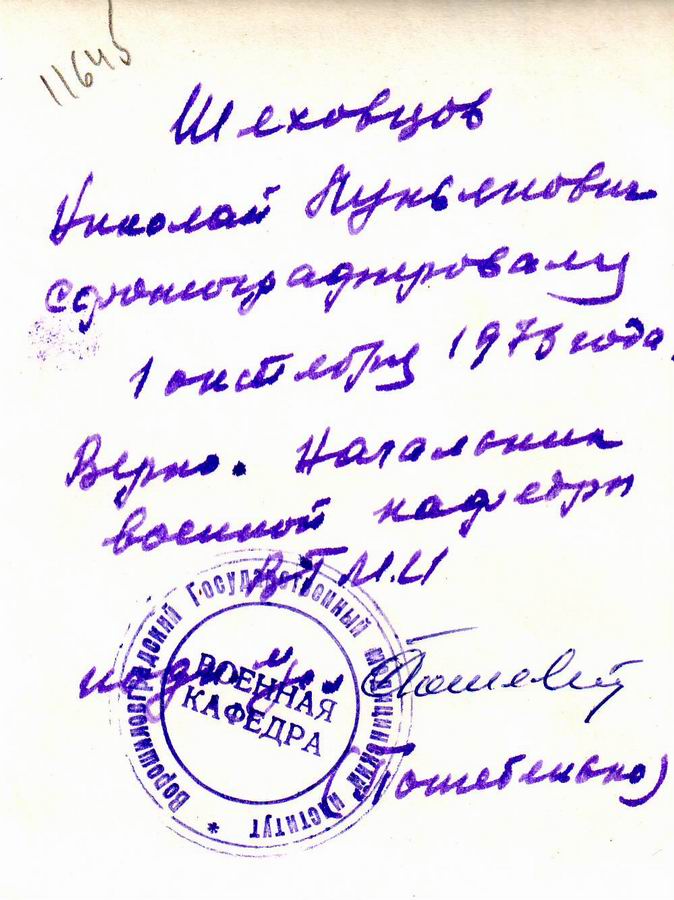 11645
Шеховцов
Николай Лукьянович
сфотографирован
1 октября 1975 года.
Верно. Начальник
военной кафедры
ВГМИ
подп-к м/с
Ворошиловградский Государственный медицинский институт *
ВОЕННАЯ
КАФЕДРА